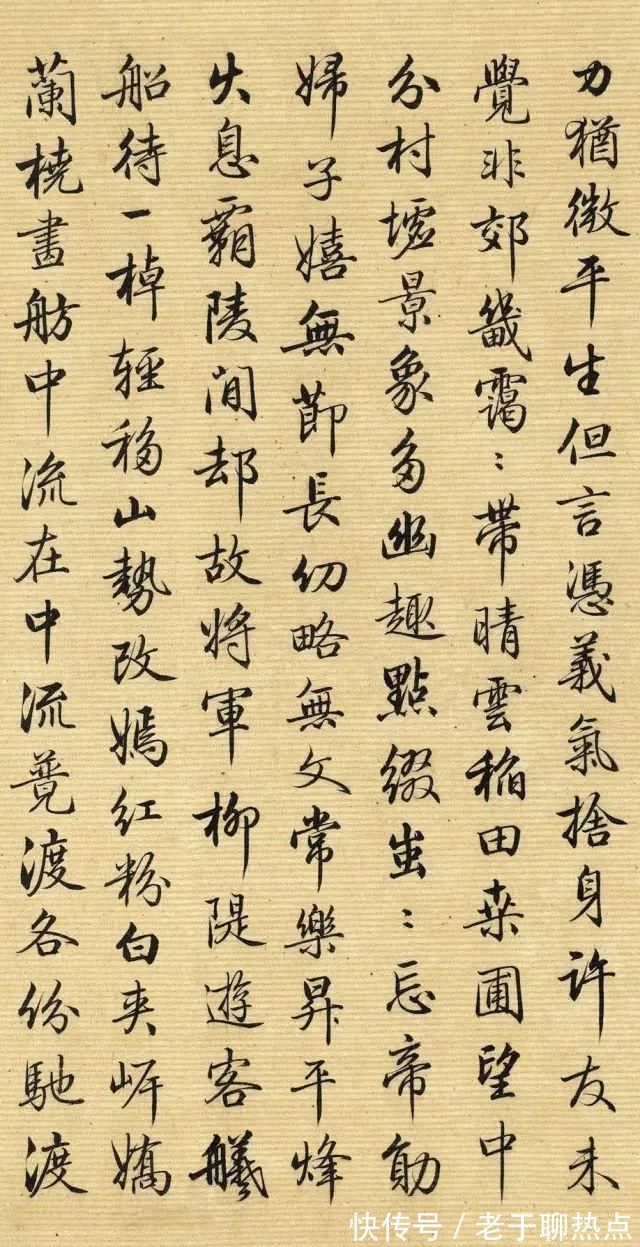 力猶微平生但言憑義氣捨身許友未
覺非郊畿靄〻帶晴雲稻田桒圃望中
分村墟景象多幽趣點綴蚩〻忘帝勛
婦子嬉無節長幼略無文常樂昇平烽
火息霸陵閒却故將軍柳隄遊客艤
船待一棹輕移山勢改嫣紅粉白夾岍嬌
蘭橈畫舫中流在中流競渡各份馳渡
快传号 / 老于聊热点